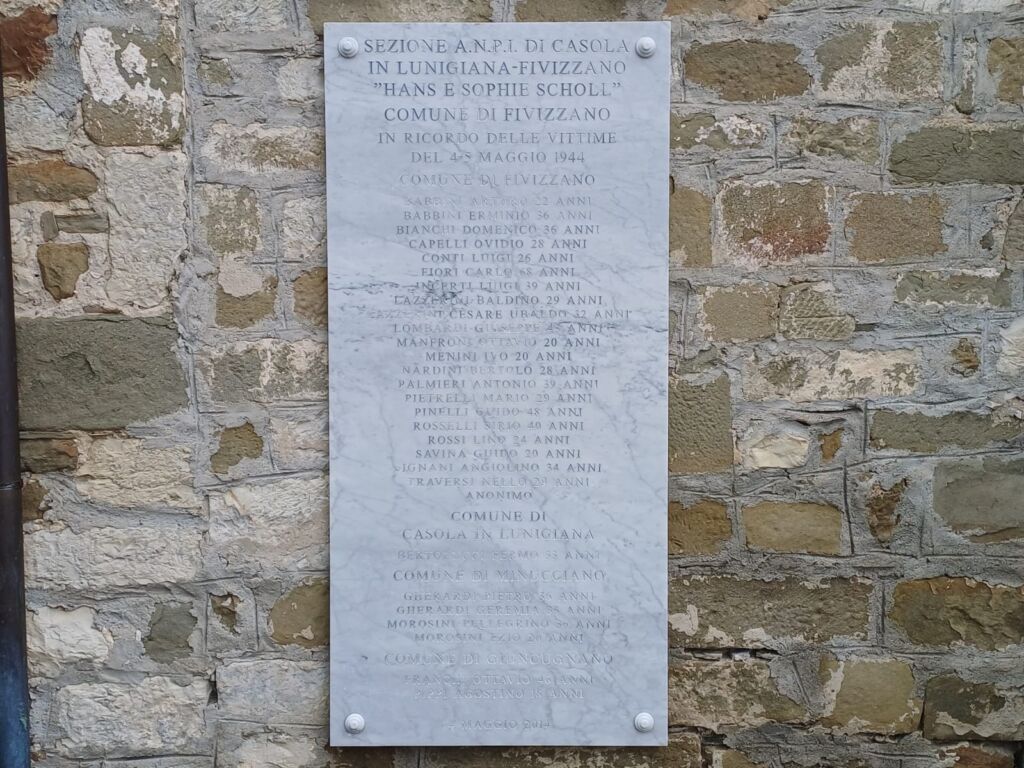 SEZIONE A.N.P.I. DI CASOLA
IN LUNIGIANA-FIVIZZANO
"HANS E SOPHIE SCHOLL"
COMUNE DI FIVIZZANO
IN RICORDO DELLE VITTIME
DEL 4-5 MAGGIO 1944
COMUNE DI FIVIZZANO
BABBINI ARTURO 22 ANNI
BABBINI ERMINIO 36 ANNI
BIANCHI DOMENICO 36 ANNI
CAPELLI OVIDIO 28 ANNI
CONTI LUIGI 26 ANNI
FIORI CARLO 68 ANNI
INCERTI LUIGI 39 ANNI
LAZZERINI BALDINO 29 ANNI
LAZZERINI CESARE UBALDO 32 ANNI
LOMBARDI GIUSEPPE 45 ANNI
MANFRONI OTTAVIO 20 ANNI
MENINI IVO 20 ANNI
NARDINI BERTOLO 28 ANNI
PALMIERI ANTONIO 39 ANNI
PIETRELLI MARIO 29 ANNI
PINELLI GUIDO 48 ANNI
ROSSELLI SIRIO 40 ANNI
ROSSI LINO 24 ANNI
SAVINA GUIDO 20 ANNI
SIGNANI ANGIOLINO 34 ANNI
TRAVERSI NELLO 29 ANNI
ANONIMO
COMUNE DI
CASOLA IN LUNIGIANA
FERMO 33 ANNI
COMUNE DI MINUCCIANO
GHERARDI PIETRO 36 ANNI
GHERARDI GEREMIA 36 ANNI
MOROSINI PELLEGRINO 36 ANNI
MOROSINI EZIO 20 ANNI
COMUNE DI GIUNCUGNANO
OTTAVIO 46 ANNI
AGOSTINO 18 ANNI
MAGGIO 2014